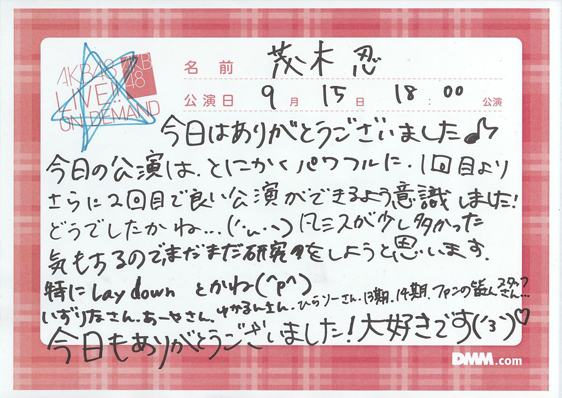 AKB48
LIVE!!
ON DEMAND
AKB
48
名前 茂木忍
公演日 9月15日 18:00公演
今日はありがとうございました♪
今日の公演は、とにかくパワフルに、1回目より
さらに2回目で良い公演ができるよう意識しました!
どうでしたかね...(´・ω・`)凡ミスが少し多かった
気もするのでまだまだ研究をしようと思います。
特にLay down とかね(^p^)
いずりなさん、あーやさん、ゆかるんさん、ひらりーさん、13期、14期、ファンの皆さん、スタッフさん...
今日もありがとうございました!大好きです(´3`)♡
DMM.com